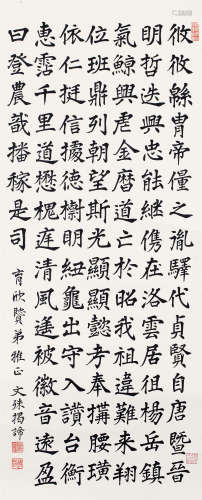 攸攸緜冑帝僮之胤驛代貞賢自唐曁晉
明哲迭興忠能繼儁在洛雲居徂楊岳鎮
氣鯨興虐金曆道亡於昭我祖違難來翔
位班鼎列朝望斯光顯顯懿考奉搆腰璜
依仁挺信據德樹明紐龜出守入讚台衡
惠霑千里道懋槐庭清風遙被休音遠盈
曰登農哉播稼是司
育欣賢弟雅正 文殊揭諦